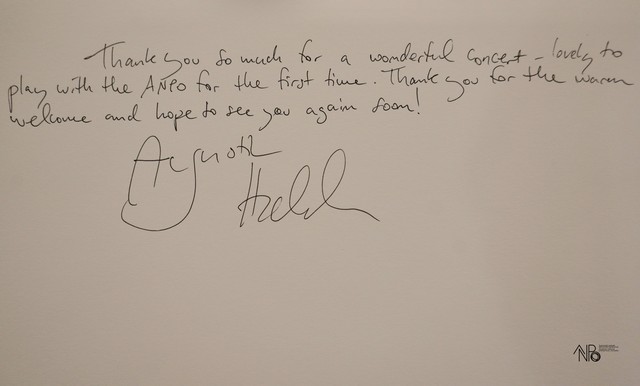 Thank you so much for a wonderful concert – lovely to
play with the ANPO for the first time. Thank you for the warm
welcome and hope to see you again soon!
Augustin
Hadelich
ANPO